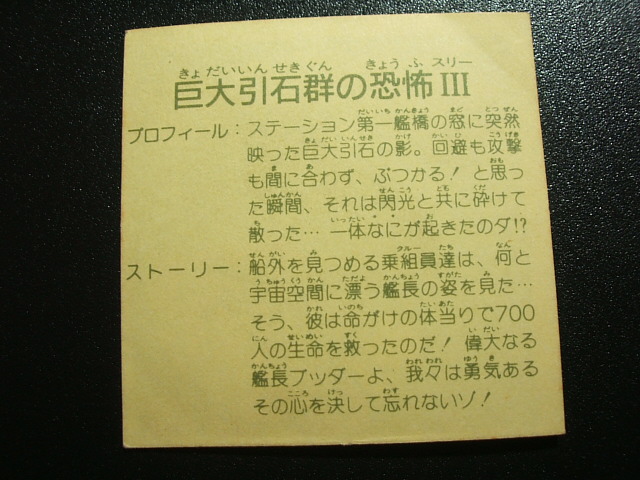 巨大引石群の恐怖III
プロフィール：ステーション第一艦橋の窓に突然
映った巨大引石の影。回避も攻撃
も間に合わず、ぶつかる！と思っ
た瞬間、それは閃光と共に砕けて
散った…一体なにが起きたのダ!?
ストーリー：船外を見つめる乗組員達は、何と
宇宙空間に漂う艦長の姿を見た…
そう、彼は命がけの体当りで700
人の生命を救ったのだ！偉大なる
艦長ブッダーよ、我々は勇気ある
その心を決して忘れないゾ！